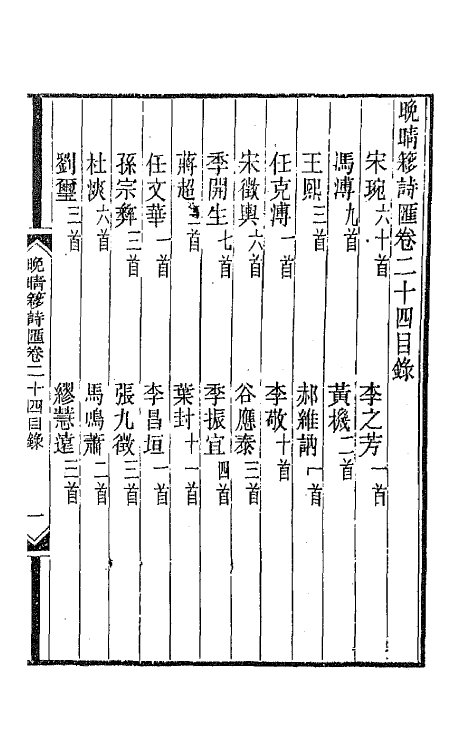 晚晴簃詩匯卷二十四目錄
宋琬六十首　李之芳一首
馮溥九首　黃機二首
王熙三首　郝維訥一首
任克溥一首　李敬十首
宋徵輿六首　谷應泰三首
季開生七首　季振宜四首
蔣超二首　葉封十一首
任文華一首　李昌垣一首
孫宗彝三首　張九徵三首
杜漺六首　馬鳴蕭二首
劉璽三首　繆慧遠三首
晚晴簃詩匯卷二十四目錄　一